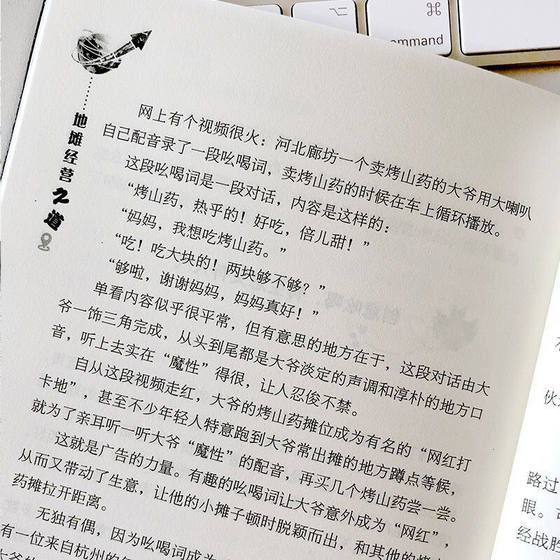 command
⌥
⌘
地摊经营之道
网上有个视频很火：河北廊坊一个卖烤山药的大爷用大喇叭
自己配音录了一段吆喝词，卖烤山药的时候在车上循环播放。
这段吆喝词是一段对话，内容是这样的：
“烤山药，热乎的！好吃，倍儿甜！”
“妈妈，我想吃烤山药。”
“吃！吃大块的！两块够不够？”
“够啦，谢谢妈妈，妈妈真好！”
单看内容似乎很平常，但有意思的地方在于，这段对话由大
爷一饰三角完成，从头到尾都是大爷淡定的声调和淳朴的地方口
音，听上去实在“魔性”得很，让人忍俊不禁。
自从这段视频走红，大爷的烤山药摊位成为有名的“网红打
卡地”，甚至不少年轻人特意跑到大爷常出摊的地方蹲点等候，
就为了亲耳听一听大爷“魔性”的配音，再买几个烤山药尝一尝。
这就是广告的力量。有趣的吆喝词让大爷意外成为“网红”，
从而又带动了生意，让他的小摊子顿时脱颖而出，和其他的烤山
药摊拉开距离。
无独有偶，因为吆喝词成为
有一位来自杭州的
伙
路过
眼。
经战